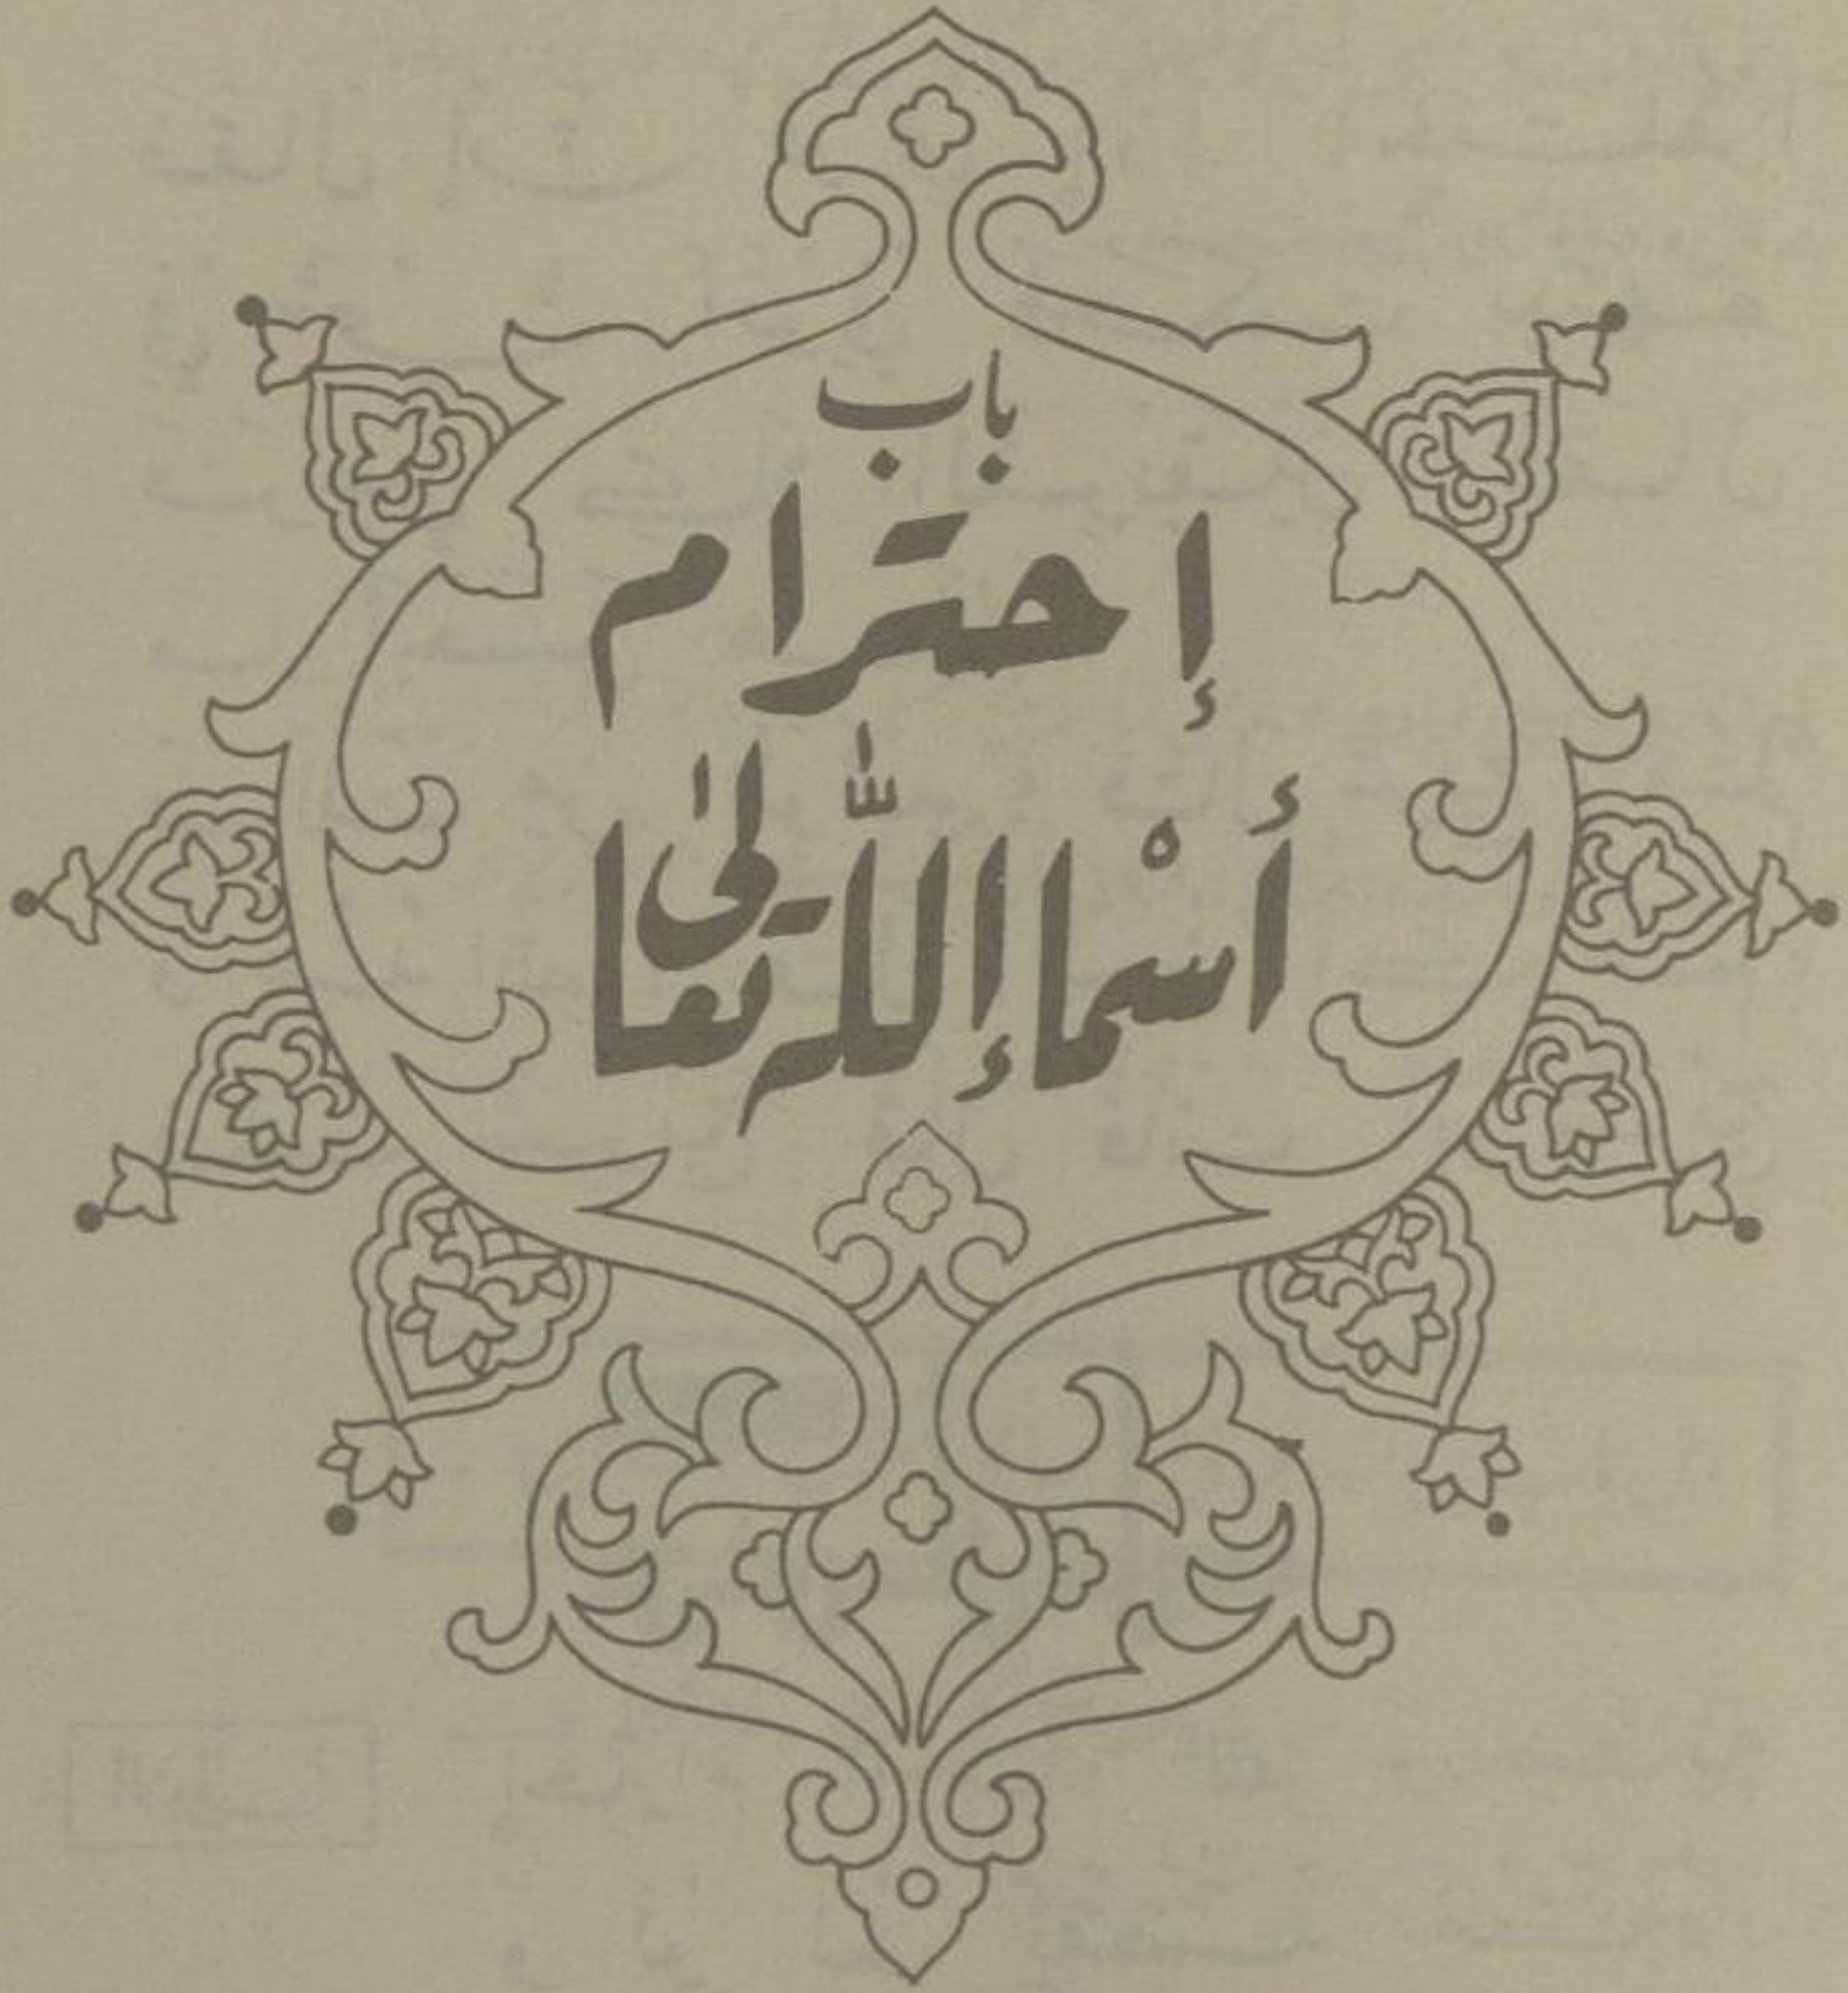 باب
إحترام
أسْماءِ اللّٰه تعالىٰ